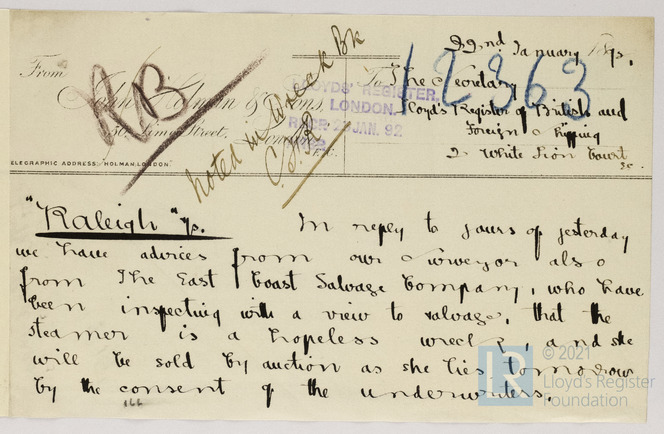 22nd January 1892.
From
To The Secretary
12363
RB
John Holman & Sons,
Lloyds Register of British and
Foreign Shipping
50, Lime Street,
London, E.C.
2 White Lion Court
E.C.
TELEGRAPHIC ADDRESS: HOLMAN, LONDON.
LLOYDS' REGISTER,
LONDON.
JAN. 92
noted in Wreck Bk
"Raleigh" s/s. In reply to yours of yesterday
we have advices from our Surveyor also
from The East Coast Salvage Company, who have
been inspecting with a view to salvage, that the
steamer is a hopeless wreck, and she
will be sold by auction as she lies tomorrow
by the consent of the underwriters.
166
LR
© 2021
Lloyd's Register
Foundation